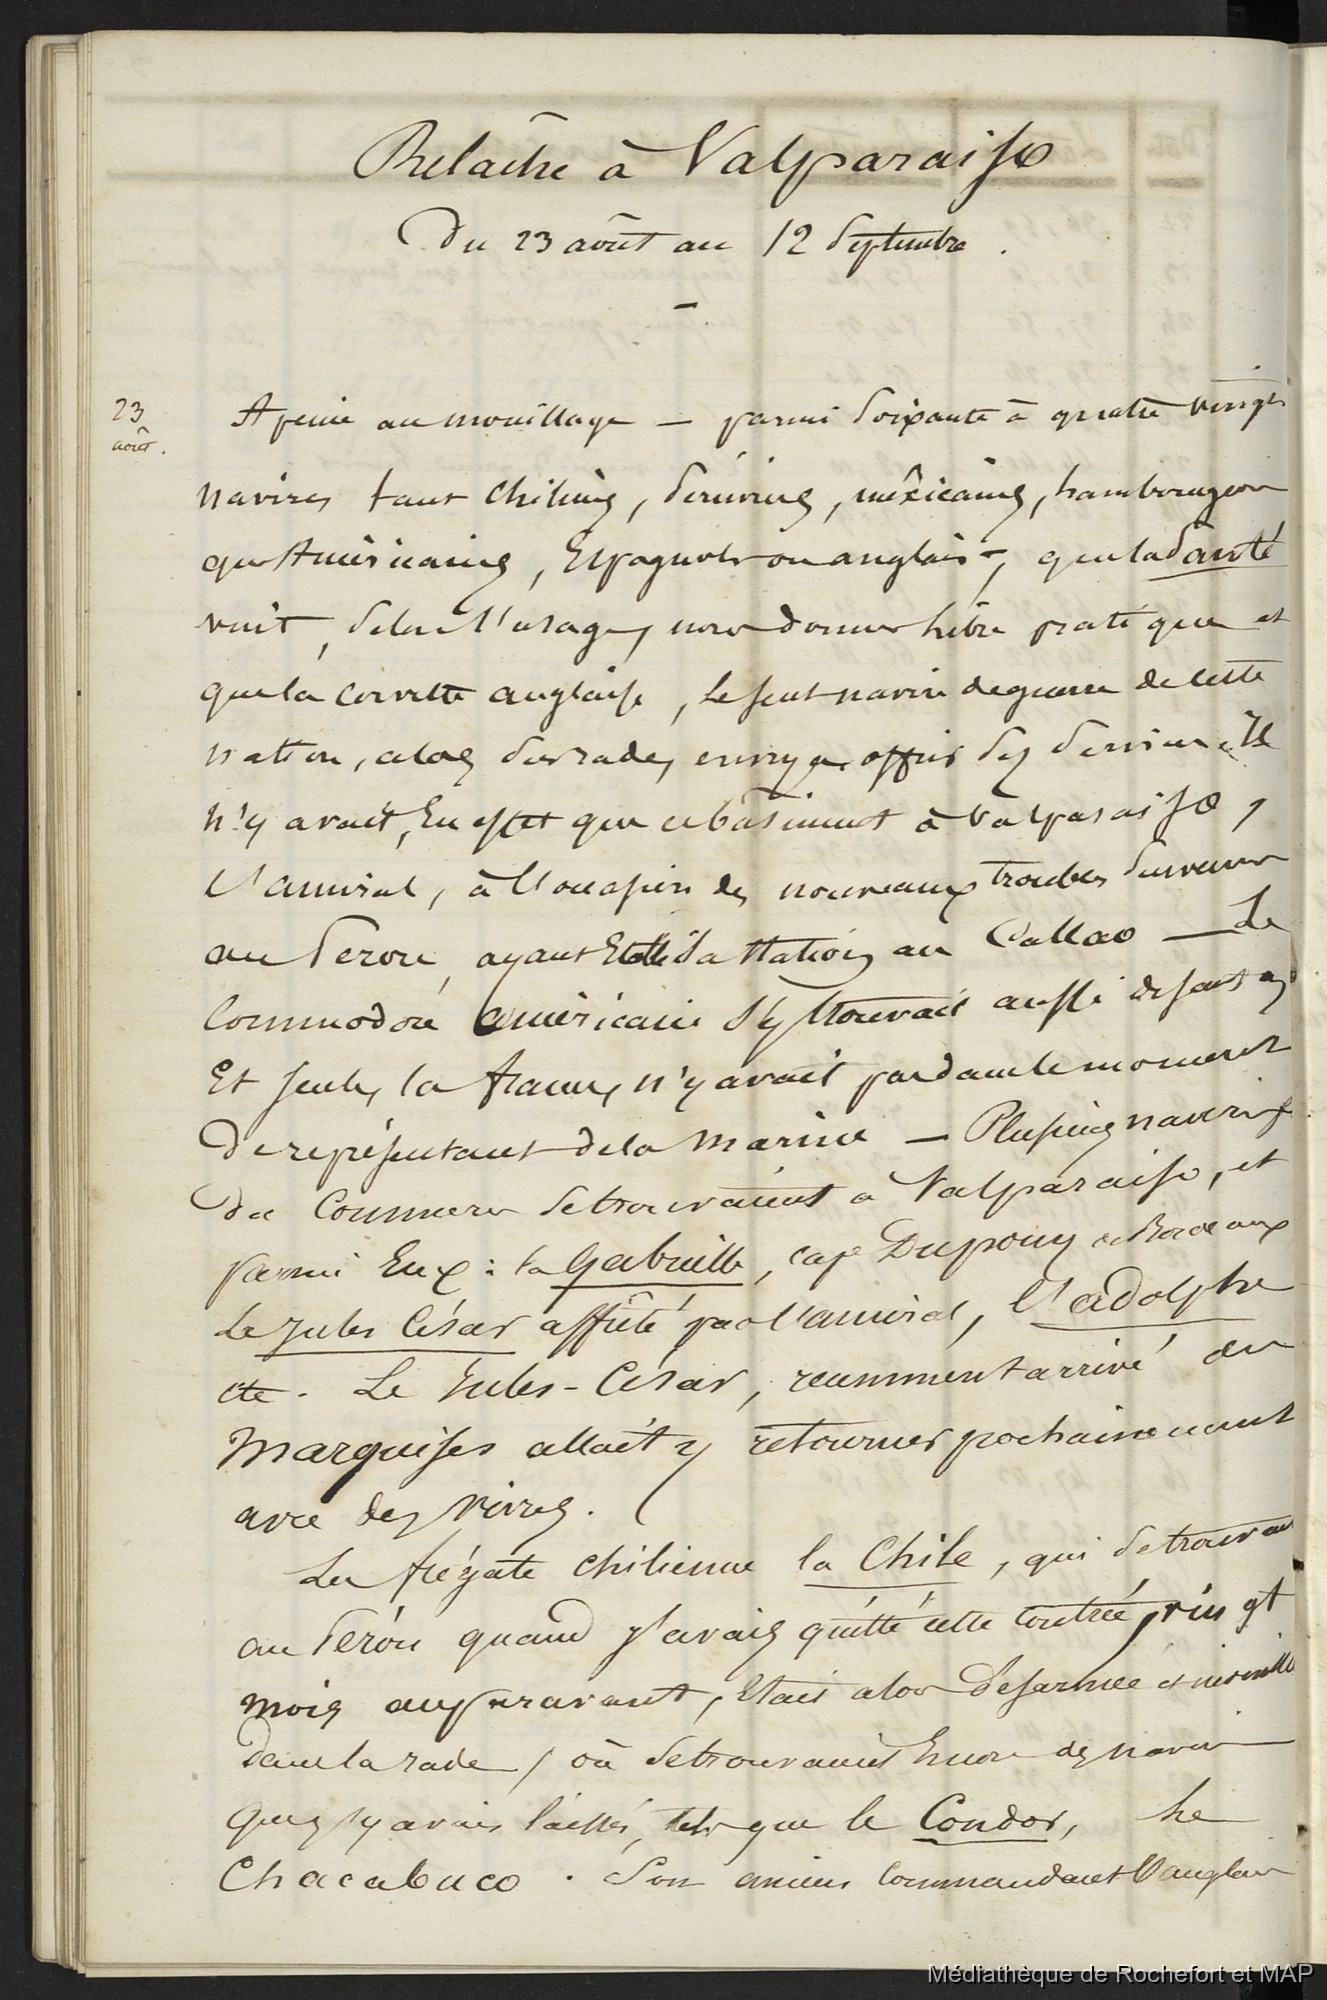 Relâche à Valparaiso
Du 23 août au 12 Septembre.
23
août.
A peine au mouillage — parmi soixante à quatre vingts
navires tant chiliens, péruviens, méxicains, hambourgeois
qu'Américains, Espagnols ou anglais —, que la Santé
vint, selon l'usage, nous donner libre pratique et
que la corvette anglaise, le seul navire de guerre de cette
nation, alors sur rade, envoya offrir ses services. Il
n'y avait, En effet que ce bâtiment à Valparaiso,
l'amiral, à l'occasion des nouveaux troubles survenus
au Pérou, ayant Etabli sa station au Callao — Le
Commodore américain s'y trouvait aussi
Et seule, la france, n'y avait pas dans le moment
de représentant de la marine — Plusieurs navires
du Commerce se trouvaient à Valparaiso, et
parmi Eux : la Gabrielle, cap. Dupouy de Bordeaux
Le Jules César affrété par l'amiral, l'adolphe
etc. Le Jules-César, récemment arrivé des
Marquises allait y retourner prochainement
avec des vivres.
La frégate chilienne la Chile, qui se trouvait
au Pérou quand j'avais quitté cette contrée, vingt
mois auparavant, Etait alors désarmée et
dans la rade, où se trouvaient Encore des navires
que j'y avais laissés, tels que le Condor, le
Chacabuco. Son ancien Commandant l'anglais
Médiathèque de Rochefort et MAP